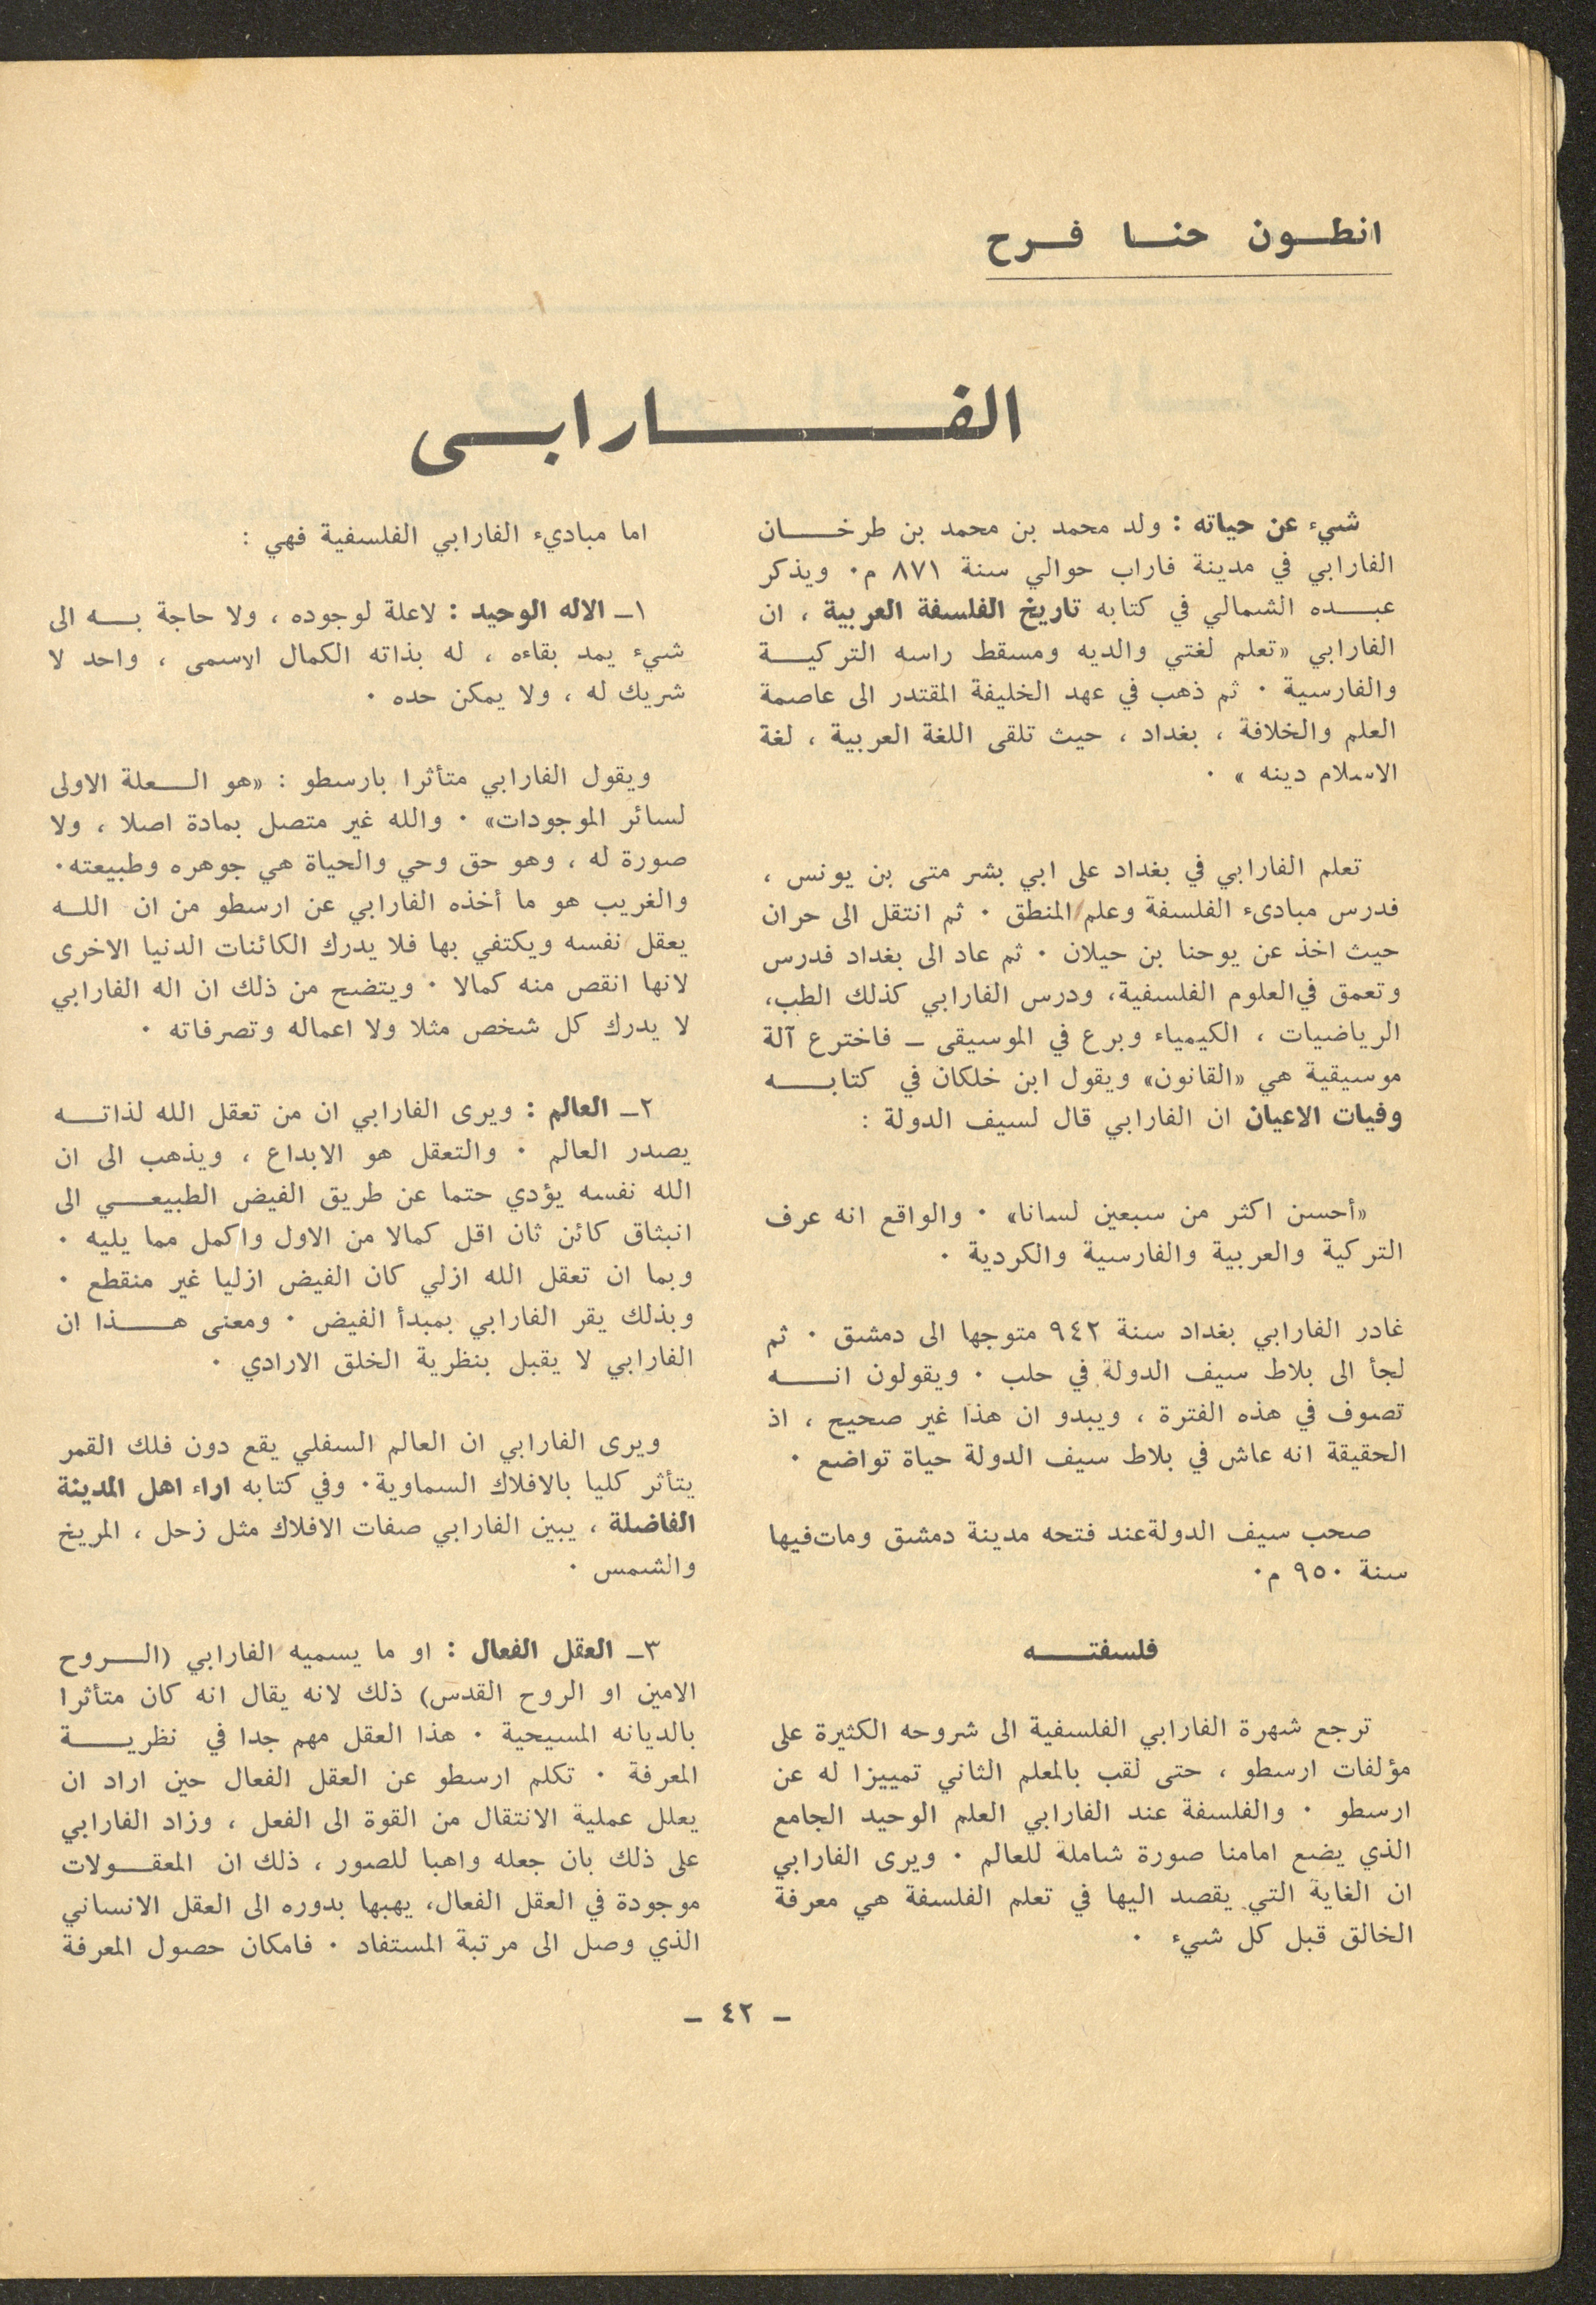 انطون حنا فرح
الفارابي
شيء عن حياته : ولد محمد بن محمد بن طرخان
الفارابي في مدينة فاراب حوالي سنة ٨٧١ م٠ ويذكر
عبده الشمالي في كتابه تاريخ الفلسفة العربية ، ان
الفارابي «تعلم لغتي والديه ومسقط راسه التركية
والفارسية ٠ ثم ذهب في عهد الخليفة المقتدر الى عاصمة
العلم والخلافة ، بغداد ، حيث تلقى اللغة العربية ، لغة
الاسلام دينه » ٠
تعلم الفارابي في بغداد على ابي بشر متى بن يونس ،
فدرس مبادىء الفلسفة وعلم المنطق ٠ ثم انتقل الى حران
حيث اخذ عن يوحنا بن حيلان ٠ ثم عاد الى بغداد فدرس
وتعمق في العلوم الفلسفية، ودرس الفارابي كذلك الطب،
الرياضيات ، الكيمياء وبرع في الموسيقى ـ فاخترع آلة
موسيقية هي «القانون» ويقول ابن خلكان في كتابه
وفيات الاعيان ان الفارابي قال لسيف الدولة :
«أحسن اكثر من سبعين لسانا» ٠ والواقع انه عرف
التركية والعربية والفارسية والكردية ٠
غادر الفارابي بغداد سنة ٩٤٢ متوجها الى دمشق ٠ ثم
لجأ الى بلاط سيف الدولة في حلب ٠ ويقولون انه
تصوف في هذه الفترة ، ويبدو ان هذا غير صحيح ، اذ
الحقيقة انه عاش في بلاط سيف الدولة حياة تواضع ٠
صحب سيف الدولة عند فتحه مدينة دمشق ومات فيها
سنة ٩٥٠ م٠
فلسفته
ترجع شهرة الفارابي الفلسفية الى شروحه الكثيرة على
مؤلفات ارسطو ، حتى لقب بالمعلم الثاني تمييزا له عن
ارسطو ٠ والفلسفة عند الفارابي العلم الوحيد الجامع
الذي يضع امامنا صورة شاملة للعالم ٠ ويرى الفارابي
ان الغاية التي يقصد اليها في تعلم الفلسفة هي معرفة
الخالق قبل كل شيء ٠
اما مباديء الفارابي الفلسفية فهي :
١ـ الاله الوحيد : لاعلة لوجوده ، ولا حاجة به الى
شيء يمد بقاءه ، له بذاته الكمال الاسمى ، واحد لا
شريك له ، ولا يمكن حده ٠
ويقول الفارابي متأثرا بارسطو : «هو العلة الاولى
لسائر الموجودات» ٠ والله غير متصل بمادة اصلا ، ولا
صورة له ، وهو حق وحي والحياة هي جوهره وطبيعته٠
والغريب هو ما أخذه الفارابي عن ارسطو من ان الله
يعقل نفسه ويكتفي بها فلا يدرك الكائنات الدنيا الاخرى
لانها انقص منه كمالا ٠ ويتضح من ذلك ان اله الفارابي
لا يدرك كل شخص مثلا ولا اعماله وتصرفاته ٠
٢ـ العالم : ويرى الفارابي ان من تعقل الله لذاته
يصدر العالم ٠ والتعقل هو الابداع ، ويذهب الى ان
الله نفسه يؤدي حتما عن طريق الفيض الطبيعي الى
انبثاق كائن ثان اقل كمالا من الاول واكمل مما يليه ٠
وبما ان تعقل الله ازلي كان الفيض ازليا غير منقطع ٠
وبذلك يقر الفارابي بمبدأ الفيض ٠ ومعنى هذا ان
الفارابي لا يقبل بنظرية الخلق الارادي ٠
ويرى الفارابي ان العالم السفلي يقع دون فلك القمر
يتأثر كليا بالافلاك السماوية٠ وفي كتابه اراء اهل المدينة
الفاضلة ، يبين الفارابي صفات الافلاك مثل زحل ، المريخ
والشمس ٠
٣ـ العقل الفعال : او ما يسميه الفارابي (الروح
الامين او الروح القدس) ذلك لانه يقال انه كان متأثرا
بالديانه المسيحية ٠ هذا العقل مهم جدا في نظرية
المعرفة ٠ تكلم ارسطو عن العقل الفعال حين اراد ان
يعلل عملية الانتقال من القوة الى الفعل ، وزاد الفارابي
على ذلك بان جعله واهبا للصور ، ذلك ان المعقولات
موجودة في العقل الفعال، يهبها بدوره الى العقل الانساني
الذي وصل الى مرتبة المستفاد ٠ فامكان حصول المعرفة
ـ ٤٢ ـ